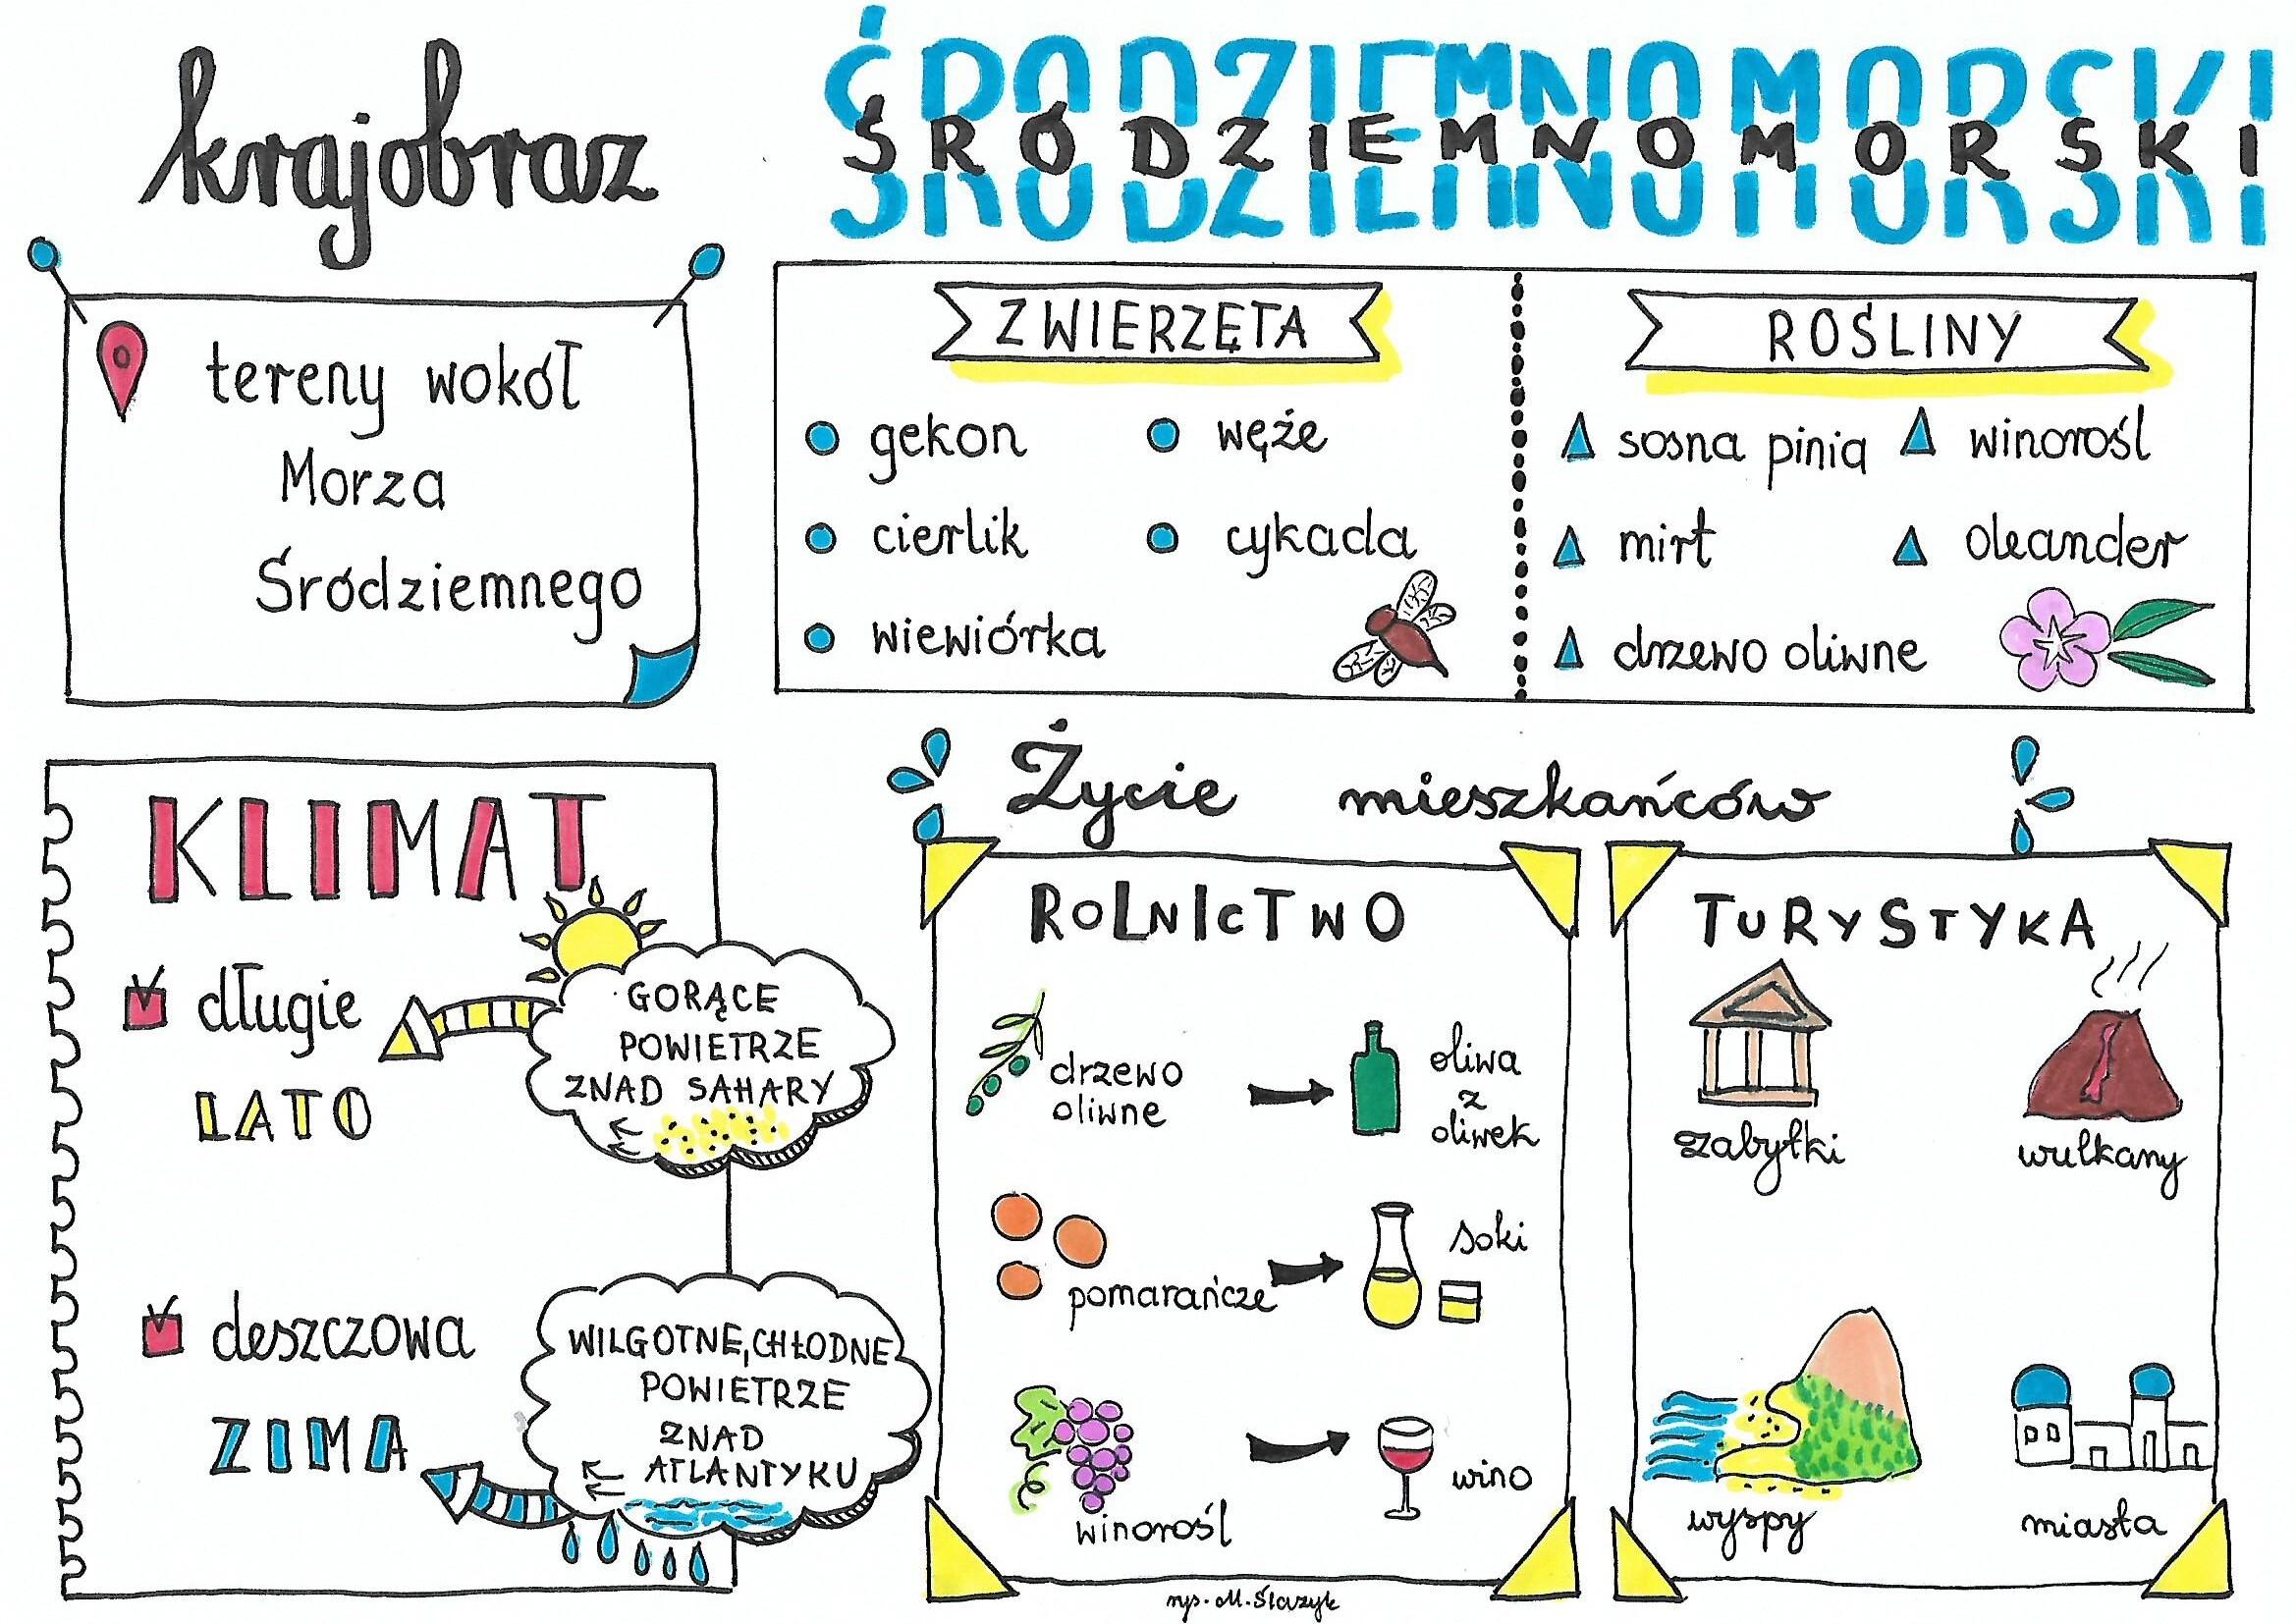 krajobraz
ŚRÓDZIEMNOMORSKI
tereny wokół
Morza
Śródziemnego
ZWIERZĘTA
gekon
węże
cierlik
cykada
wiewiórka
ROŚLINY
sosna pinia
winorośl
mirt
oleander
drzewo oliwne
KLIMAT
długie
LATO
GORĄCE
POWIETRZE
ZNAD SAHARY
deszczowa
ZIMA
WILGOTNE, CHŁODNE
POWIETRZE
ZNAD
ATLANTYKU
Życie mieszkańców
ROLNICTWO
drzewo
oliwne
oliwa
z
oliwek
pomarańcze
soki
winorośl
wino
TURYSTYKA
zabytki
wulkany
wyspy
miasta
rys. M.